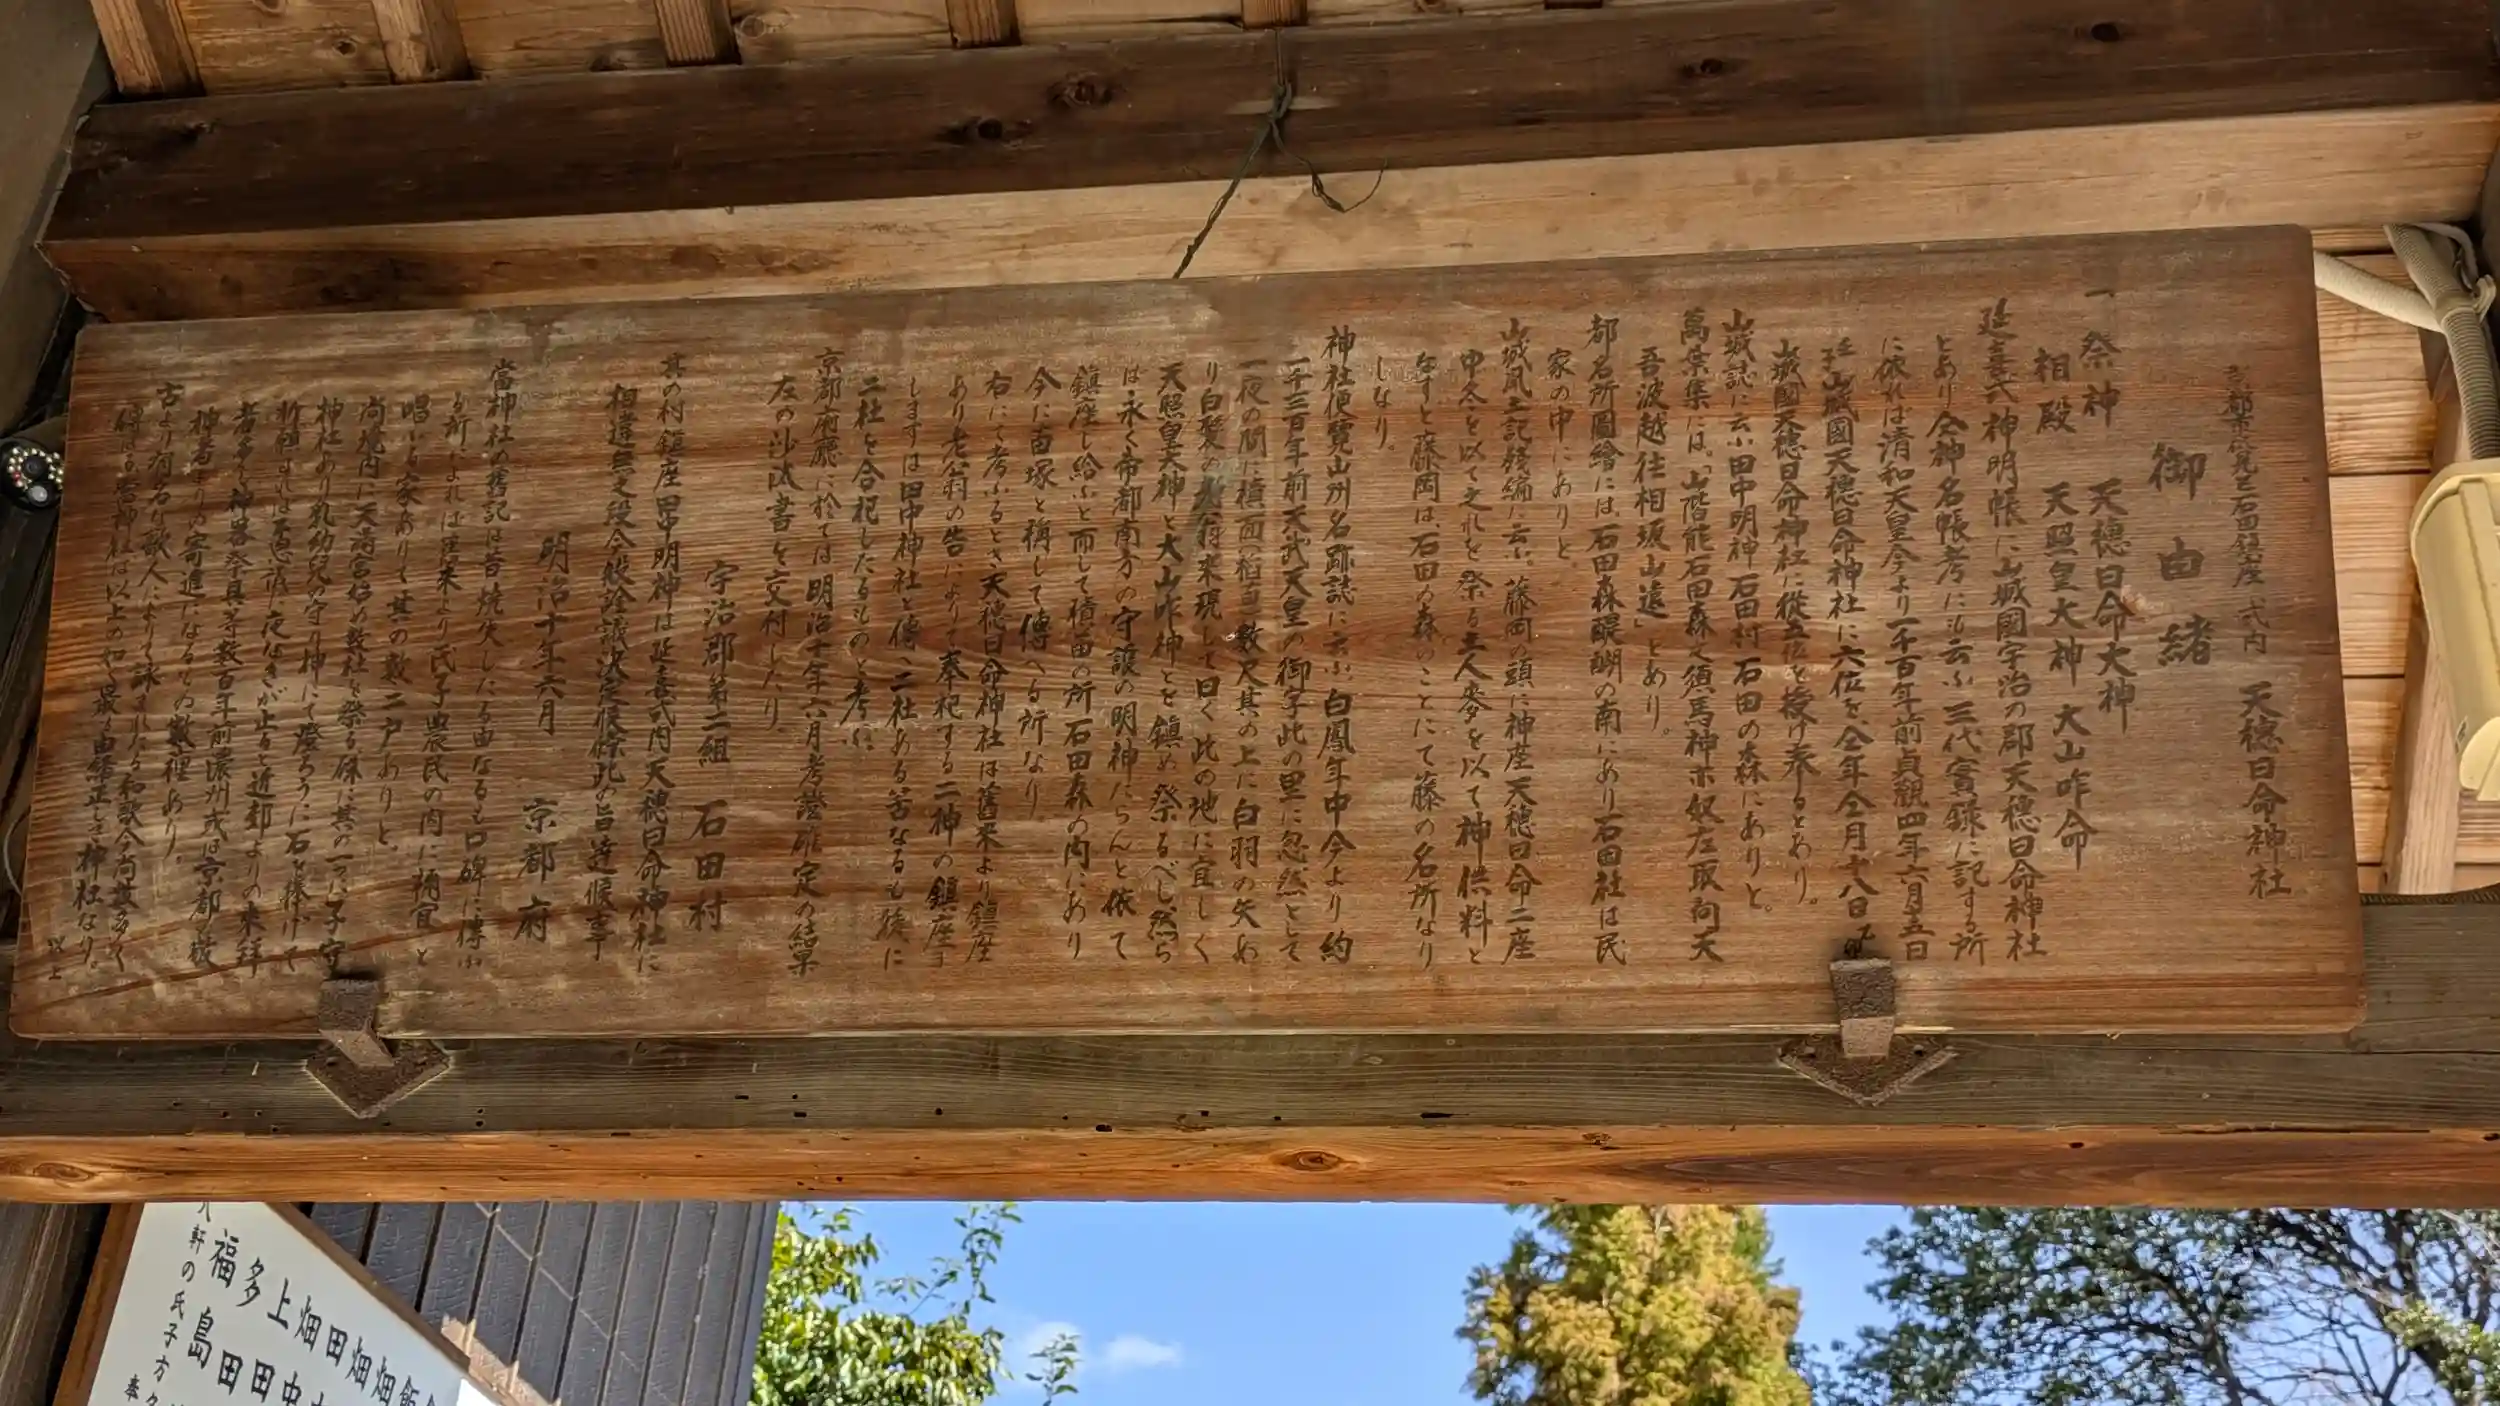 石田鎮座 式内 天穂日命神社
御由緒
一祭神 天穂日命大神
相殿 天照皇大神 大山咋命
延喜式神明帳に山城國宇治の郡天穂日命神社
とあり仝神名帳考にも云ふ三代實録に記する所
に依れば清和天皇今より一千百年前貞観四年六月五日
山城國天穂日命神社に六位を、仝年仝月十八日
山城國天穂日命神社に從五位を授け奉るとあり。
山城誌に云ふ田中明神石田村石田の森にありと。
萬葉集には「山階能石田森之須馬神尓奴左取向天
吾波越往相坂山遠」とあり。
都名所圖繪には、石田森醍醐の南にあり石田社は民
家の中にありと。
山城風土記残編に云ふ。藤岡の頭に神座天穂日命二座
申冬を以て之れを祭る土人麥を以て神供料と
なすと藤岡は、石田の森のことにて藤の名所なり
しなり。
神社便覽山州名跡誌に云ふ白鳳年中今より約
一千三百年前天武天皇の御宇此の里に忽然として
一夜の間に積苗稲 数尺其の上に白羽の矢あ
り白髪の老翁来現して曰く此の地に宜しく
天照皇大神と大山咋神とを鎮め祭るべし然ら
は永く帝都南方の守護の明神たらんと依て
鎮座し給ふと而して積苗の所石田森の内にあり
今に苗塚と稱して傳へる所なり
右にて考ふるとき天穂日命神社は舊来より鎮座
あり老翁の告によりて奉祀する二神の鎮座
しますは田中神社と傳へ二社ある筈なるも後に
二社を合祀したるものと考に
京都府廳に於ては明治十年六月考證確定の結果
左の沙汰書を交付したり。
宇治郡第二組 石田村
其の村鎮座田中明神は延喜式内天穂日命神社に
相違無之段今般詮議決定候條此の旨達候事
明治十年六月 京都府
當神社の舊記は昔焼失したる由なるも口碑に傳ふ
る所によれは往来より氏子農民の内に禰宜と
唱いる家ありて其の数二戸ありと。
尚境内に天満宮始め数社を祭る保に其の一つに子守
神社あり乳幼児の守り神にて燈ろうに石を捧げて
祈願すれは悪 誠に夜なきが止ると近郷よりの来拜
者多く神器祭具等数百年前濃州或は京都の敬
神者よりの寄進になるもの数種あり。
古より有名な歌人によりて詠まれたる和歌今尚数多く
傳はる當神社は以上の如く最も由緒正しき神社なり。
以上
八軒の氏子方々
奉
福 多 上 畑 田 畑 畑 飯
島 田 田 中